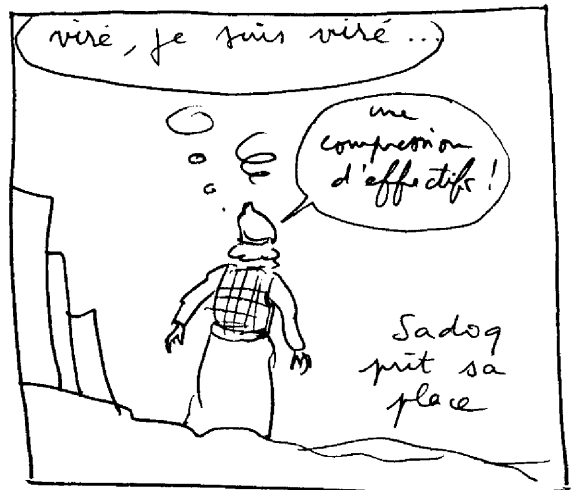 viré, je suis viré...
une
compression
d'effectifs !
Sadoq
prit sa
place